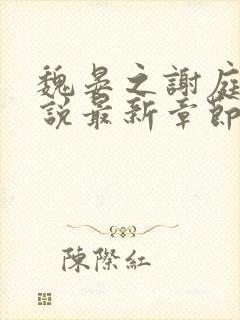 魏晏之謝庭
說最新章節
陳際紅